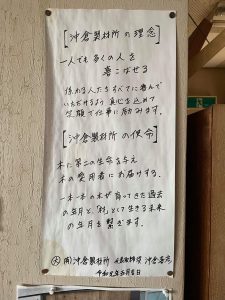 [沖倉製材所の理念]
一人でも多くの人を
喜こばせる
係わる人たちすべてに喜んで
いただけるよう 真心を込めて
笑顔で仕事に励みます。
[沖倉製材所の使命]
木に第二の生命を与え
木の愛用者にお届けする。
一本一本の木が育ってきた過去
の年月と、「材」として生きる未来
の年月を繋ぎます。
(有)沖倉製材所 代表取締役 沖倉